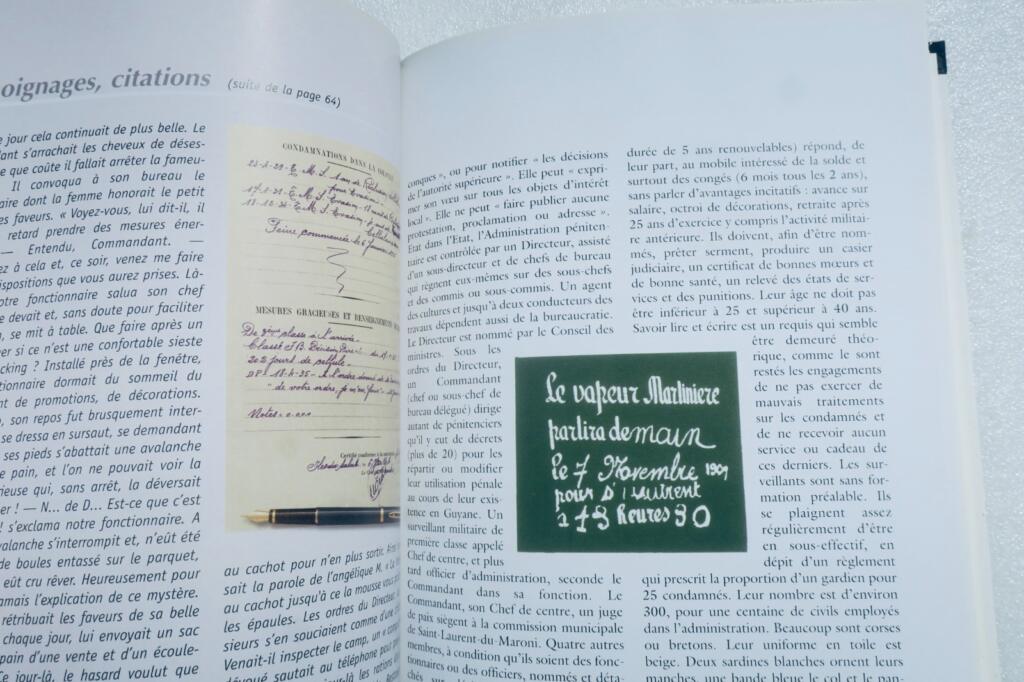 oignages, citations (suite de la page 64)
e jour cela continuait de plus belle. Le
dant s'arrachait les cheveux de déses-
e que coûte il fallait arrêter la fameu-
Il convoqua à son bureau le
aire dont la femme honorait le petit
es faveurs. « Voyez-vous, lui dit-il, il
retard prendre des mesures éner-
— Entendu, Commandant. —
ez à cela et, ce soir, venez me faire
ispositions que vous aurez prises. Là-
otre fonctionnaire salua son chef
e devait et, sans doute pour faciliter
n, se mit à table. Que faire après un
er si ce n'est une confortable sieste
cking ? Installé près de la fenêtre,
tionnaire dormait du sommeil du
nt de promotions, de décorations.
o, son repos fut brusquement inter-
se dressa en sursaut, se demandant
ses pieds s'abattait une avalanche
e pain, et l'on ne pouvait voir la
rieuse qui, sans arrêt, la déversait
er ! — N... de D... Est-ce que c'est
! s'exclama notre fonctionnaire. A
valanche s'interrompit et, n'eût été
de boules entassé sur le parquet,
eût cru rêver. Heureusement pour
amais l'explication de ce mystère.
rétribuait les faveurs de sa belle
chaque jour, lui envoyait un sac
pain d'une vente et d'un écoule-
Ce jour-là, le hasard voulut que
CONDAMNATIONS DANS LA
MESURES GRACIEUSES ET RENSEIGNEMENTS
Notes
au cachot pour n'en plus sortir.
sait la parole de l'angélique M.
au cachot jusqu'à ce la mousse vous
les épaules. Les ordres du Directeur,
sieurs s'en souciaient comme d'une
Venait-il inspecter le camp, un
dévoué sautait au téléphone pour
jour-là les rations
conques », ou pour notifier « les décisions
de l'autorité supérieure ». Elle peut « expri-
mer son vœu sur tous les objets d'intérêt
local ». Elle ne peut « faire publier aucune
protestation, proclamation ou adresse ».
Etat dans l'Etat, l'Administration péniten-
tiaire est contrôlée par un Directeur, assisté
d'un sous-directeur et de chefs de bureau
qui règnent eux-mêmes sur des sous-chefs
et des commis ou sous-commis. Un agent
des cultures et jusqu'à deux conducteurs des
travaux dépendent aussi de la bureaucratie.
Le Directeur est nommé par le Conseil des
ministres. Sous les
ordres du Directeur,
un Commandant
(chef ou sous-chef de
bureau délégué) dirige
autant de pénitenciers
qu'il y eut de décrets
(plus de 20) pour les
répartir ou modifier
leur utilisation pénale
au cours de leur exis-
tence en Guyane. Un
surveillant militaire de
première classe appelé
Chef de centre, et plus
tard officier d'administration, seconde le
Commandant dans sa fonction. Le
Commandant, son Chef de centre, un juge
de paix siègent à la commission municipale
de Saint-Laurent-du-Maroni. Quatre autres
membres, à condition qu'ils soient des fonc-
tionnaires ou des officiers, nommés et déta-
chés sur
Le vapeur Martiniere
partira demain
le 7 Novembre 1909
pour St Laurent
à 7 Heures 30
durée de 5 ans renouvelables) répond, de
leur part, au mobile intéressé de la solde et
surtout des congés (6 mois tous les 2 ans),
sans parler d'avantages incitatifs : avance sur
salaire, octroi de décorations, retraite après
25 ans d'exercice y compris l'activité militai-
re antérieure. Ils doivent, afin d'être nom-
més, prêter serment, produire un casier
judiciaire, un certificat de bonnes mœurs et
de bonne santé, un relevé des états de ser-
vices et des punitions. Leur âge ne doit pas
être inférieur à 25 et supérieur à 40 ans.
Savoir lire et écrire est un requis qui semble
être demeuré théo-
rique, comme le sont
restés les engagements
de ne pas exercer de
mauvais traitements
sur les condamnés et
de ne recevoir aucun
service ou cadeau de
ces derniers. Les sur-
veillants sont sans for-
mation préalable. Ils
se plaignent assez
régulièrement d'être
en sous-effectif, en
dépit d'un règlement
qui prescrit la proportion d'un gardien pour
25 condamnés. Leur nombre est d'environ
300, pour une centaine de civils employés
dans l'administration. Beaucoup sont corses
ou bretons. Leur uniforme en toile est
beige. Deux sardines blanches ornent leurs
manches, une bande bleue le col et le pan-